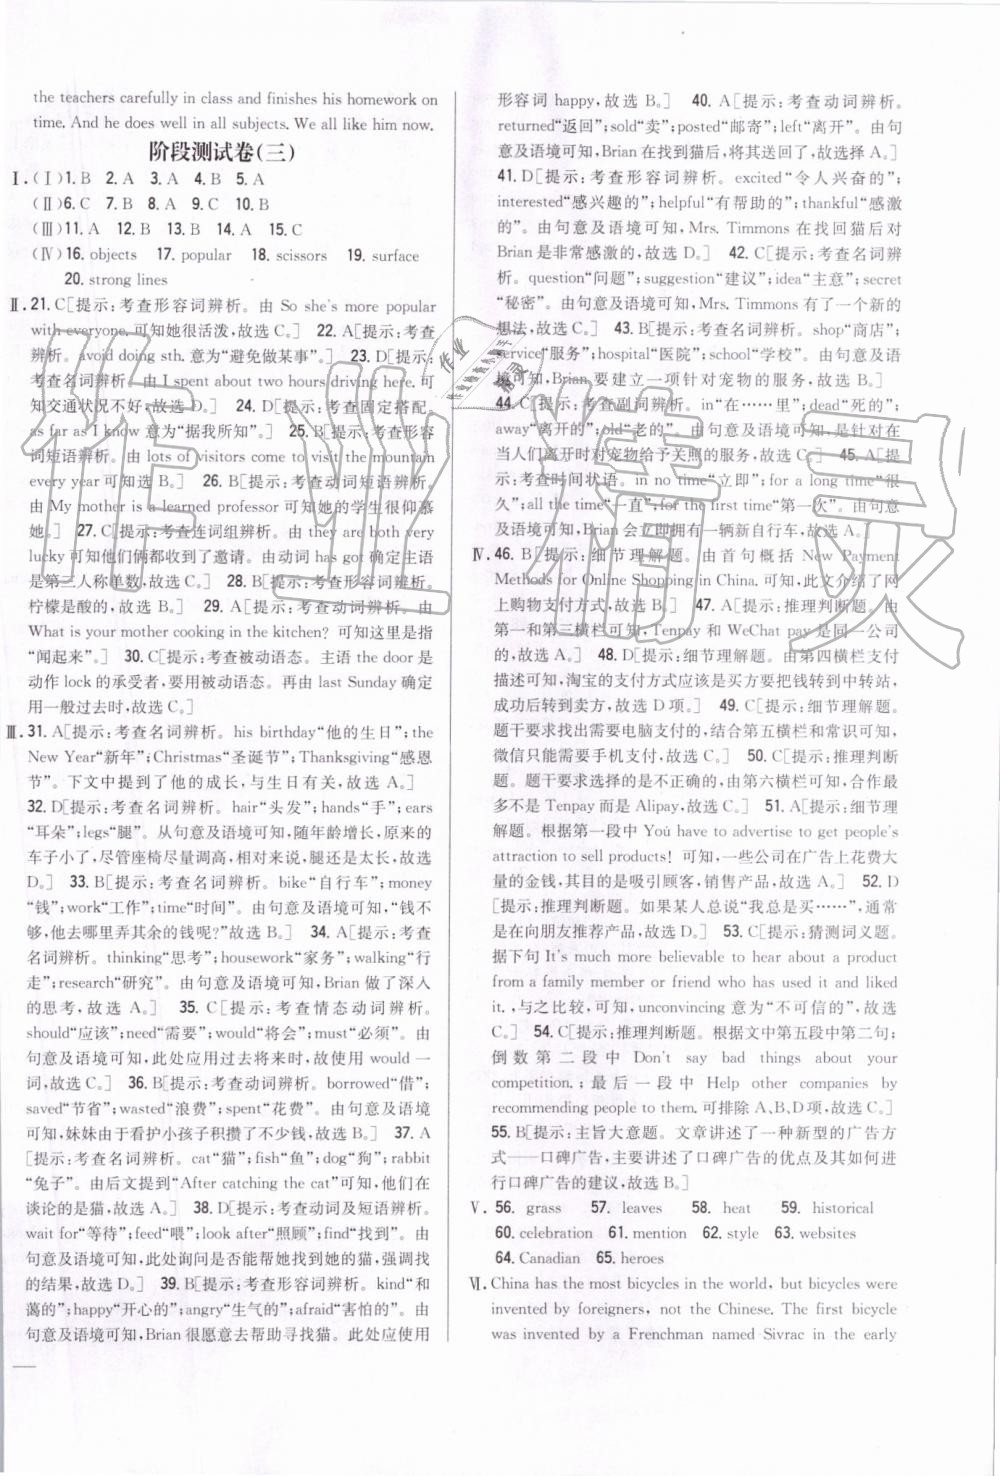 the teachers carefully in class and finishes his homework on
time. And he does well in all subjects. We all like him now.
阶段测试卷(三)
Ⅰ.(Ⅰ)1. B 2. A 3. A 4. B 5. A
(Ⅱ)6. C 7. B 8. A 9. C 10. B
(Ⅲ)11. A 12. B 13. B 14. A 15. C
(Ⅳ)16. objects 17. popular 18. scissors 19. surface
20. strong lines
Ⅱ.21. C[提示:考查形容词辨析。由 So she's more popular
with everyone. 可知她很活泼,故选 C。] 22. A[提示:考查
辨析。avoid doing sth. 意为“避免做某事”。] 23. D[提示:
考查名词辨析。由 I spent about two hours driving here. 可
知交通状况不好,故选 D。] 24. D[提示:考查固定搭配。
as far as I know 意为“据我所知”。] 25. B[提示:考查形容
词短语辨析。由 lots of visitors come to visit the mountain
every year 可知选 B。] 26. B[提示:考查动词短语辨析。
由 My mother is a learned professor 可知她的学生很仰慕
她。] 27. C[提示:考查连词组辨析。由 they are both very
lucky 可知他们俩都收到了邀请。由动词 has got 确定主语
是第三人称单数,故选 C。] 28. B[提示:考查形容词辨析。
柠檬是酸的,故选 B。] 29. A[提示:考查动词辨析。由
What is your mother cooking in the kitchen? 可知这里是指
“闻起来”。] 30. C[提示:考查被动语态。主语 the door 是
动作 lock 的承受者,要用被动语态。再由 last Sunday 确定
用一般过去时,故选 C。]
Ⅲ.31. A[提示:考查名词辨析。his birthday“他的生日”;the
New Year“新年”;Christmas“圣诞节”;Thanksgiving“感恩
节”。下文中提到了他的成长,与生日有关,故选 A。]
32. D[提示:考查名词辨析。hair“头发”;hands“手”;ears
“耳朵”;legs“腿”。从句意及语境可知,随年龄增长,原来的
车子小了,尽管座椅尽量调高,相对来说,腿还是太长,故选
D。] 33. B[提示:考查名词辨析。bike“自行车”;money
“钱”;work“工作”;time“时间”。由句意及语境可知,“钱不
够,他去哪里弄其余的钱呢?”故选 B。] 34. A[提示:考查
名词辨析。thinking“思考”;housework“家务”;walking“行
走”;research“研究”。由句意及语境可知,Brian 做了深入
的思考,故选 A。] 35. C[提示:考查情态动词辨析。
should“应该”;need“需要”;would“将会”;must“必须”。由
句意及语境可知,此处应用过去将来时,故使用 would 一
词,故选 C。] 36. B[提示:考查动词辨析。borrowed“借”;
saved“节省”;wasted“浪费”;spent“花费”。由句意及语境
可知,妹妹由于看护小孩子积攒了不少钱,故选 B。] 37. A
[提示:考查名词辨析。cat“猫”;fish“鱼”;dog“狗”;rabbit
“兔子”。由后文提到“After catching the cat”可知,他们在
谈论的是猫,故选 A。] 38. D[提示:考查动词及短语辨析。
wait for“等待”;feed“喂”;look after“照顾”;find“找到”。由
句意及语境可知,此处询问是否能帮她找到她的猫,强调找
的结果,故选 D。] 39. B[提示:考查形容词辨析。kind“和
蔼的”;happy“开心的”;angry“生气的”;afraid“害怕的”。由
句意及语境可知,Brian 很愿意去帮助寻找猫。此处应使用
形容词 happy,故选 B。] 40. A[提示:考查动词辨析。
returned“返回”;sold“卖”;posted“邮寄”;left“离开”。由句
意及语境可知,Brian 在找到猫后,将其送回了,故选择 A。]
41. D[提示:考查形容词辨析。excited“令人兴奋的”;
interested“感兴趣的”;helpful“有帮助的”;thankful“感激
的”。由句意及语境可知,Mrs. Timmons 在找回猫后对
Brian 是非常感激的,故选 D。] 42. C[提示:考查名词辨
析。question“问题”;suggestion“建议”;idea“主意”;secret
“秘密”。由句意及语境可知,Mrs. Timmons 有了一个新的
想法,故选 C。] 43. B[提示:考查名词辨析。shop“商店”;
service“服务”;hospital“医院”;school“学校”。由句意及语
境可知,Brian 要建立一项针对宠物的服务,故选 B。]
44. C[提示:考查副词辨析。in“在……里”;dead“死的”;
away“离开的”;old“老的”。由句意及语境可知,是针对在
当人们离开时对宠物给予关照的服务,故选 C。] 45. A[提
示:考查时间状语。in no time“立即”;for a long time“很
久”;all the time“一直”;for the first time“第一次”。由句意
及语境可知,Brian 会立即拥有一辆新自行车,故选 A。]
Ⅳ.46. B[提示:细节理解题。由首句概括 New Payment
Methods for Online Shopping in China. 可知,此文介绍了网
上购物支付方式,故选 B。] 47. A[提示:推理判断题。由
第一和第三横栏可知,Tenpay 和 WeChat pay 是同一公司
的,故选 A。] 48. D[提示:细节理解题。由第四横栏支付
描述可知,淘宝的支付方式应该是买方要把钱转到中转站,
成功后转到卖方,故选 D 项。] 49. C[提示:细节理解题。
题干要求找出需要电脑支付的,结合第五横栏和常识可知,
微信只能需要手机支付,故选 C。] 50. C[提示:推理判断
题。题干要求选择的是不正确的,由第六横栏可知,合作最
多不是 Tenpay 而是 Alipay,故选 C。] 51. A[提示:细节理
解题。根据第一段中 You have to advertise to get people's
attraction to sell products! 可知,一些公司在广告上花费大
量的金钱,其目的是吸引顾客,销售产品,故选 A。] 52. D
[提示:推理判断题。如果某人总说“我总是买……”,通常
是在向朋友推荐产品,故选 D。] 53. C[提示:猜测词义题。
据下句 It's much more believable to hear about a product
from a family member or friend who has used it and liked
it.,与之比较,可知,unconvincing 意为“不可信的”,故选
C。] 54. C[提示:推理判断题。根据文中第五段中第二句;
倒数第二段中 Don't say bad things about your
competition.;最后一段中 Help other companies by
recommending people to them. 可排除 A、B、D 项,故选 C。]
55. B[提示:主旨大意题。文章讲述了一种新型的广告方
式——口碑广告,主要讲述了口碑广告的优点及其如何进
行口碑广告的建议,故选 B。]
Ⅴ.56. grass 57. leaves 58. heat 59. historical
60. celebration 61. mention 62. style 63. websites
64. Canadian 65. heroes
Ⅵ.China has the most bicycles in the world, but bicycles were
invented by foreigners, not the Chinese. The first bicycle
was invented by a Frenchman named Sivrac in the early
作业精灵